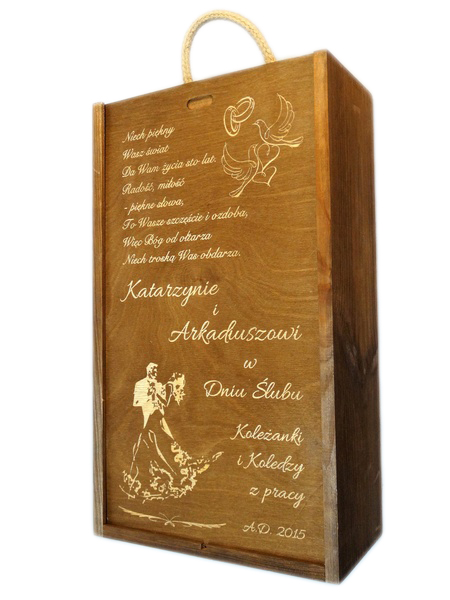 Niech piękny
Wasz świat
Da Wam życia sto lat.
Radość, miłość
- piękne słowa,
To Wasze szczęście i ozdoba,
Więc Bóg od ołtarza
Niech troską Was obdarza.
Katarzynie
i
Arkadiuszowi
w
Dniu Ślubu
Koleżanki
i Koledzy
z pracy
A.D. 2015